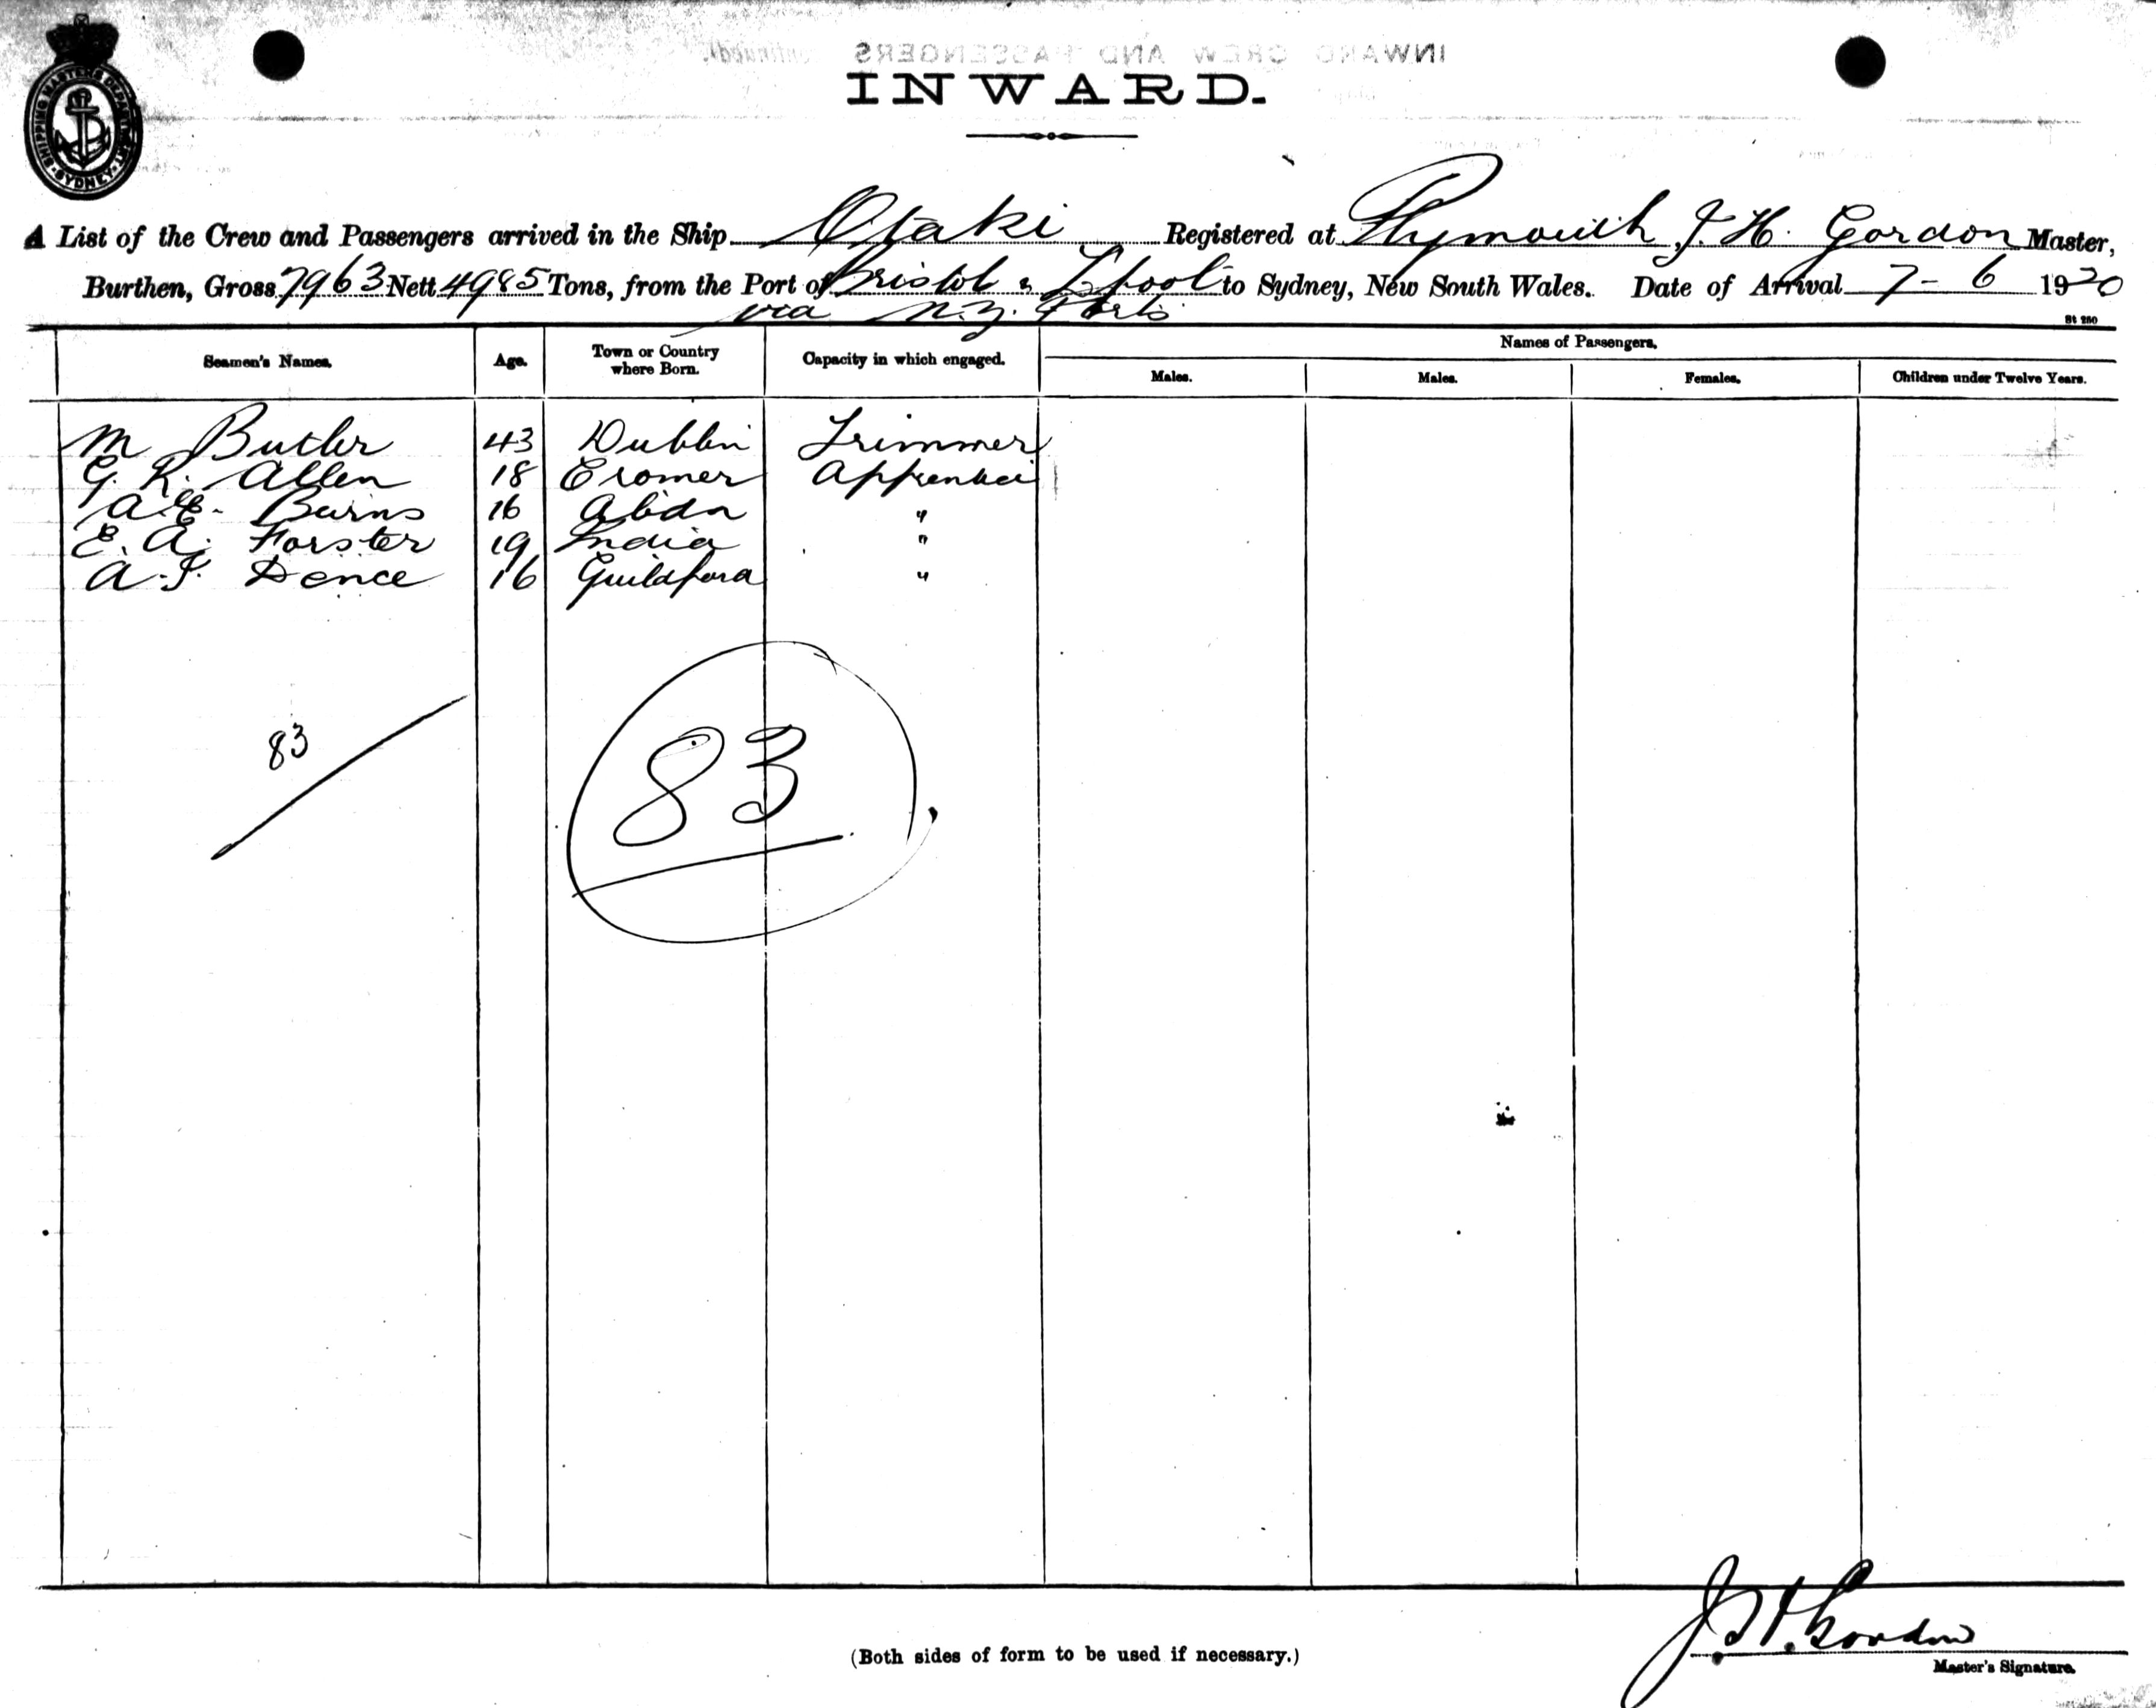 SHIPPING MASTER'S DEPARTMENT SYDNEY
INWARD CREW AND PASSENGERS (continued).
INWARD.
A List of the Crew and Passengers arrived in the Ship Otaki Registered at Plymouth J. H. Gordon Master,
Burthen, Gross 7963 Nett 4985 Tons, from the Port of Bristol & L'pool to Sydney, New South Wales. Date of Arrival 7-6 1920
via N.Z. Ports
St 250
Seamen's Names. Age. Town or Country where Born. Capacity in which engaged. Names of Passengers.
Males. Males. Females. Children under Twelve Years.
M Butler 43 Dublin Trimmer
G. R. Allen 18 Cromer Apprentice
A. E. Burns 16 Abdn "
E. A. Forster 19 India "
A. J. Dence 16 Guildford "
83
83
J. H. Gordon
(Both sides of form to be used if necessary.)
Master's Signature.